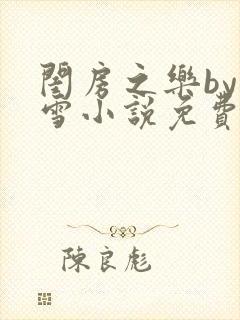 閨房之樂by
雪小說免費
陳良彪